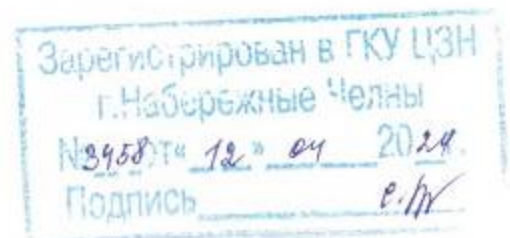 Зарегистрирован в ГКУ ЦЗН
г.Набережные Челны
№3458от« 12 » 04 2024.
Подпись